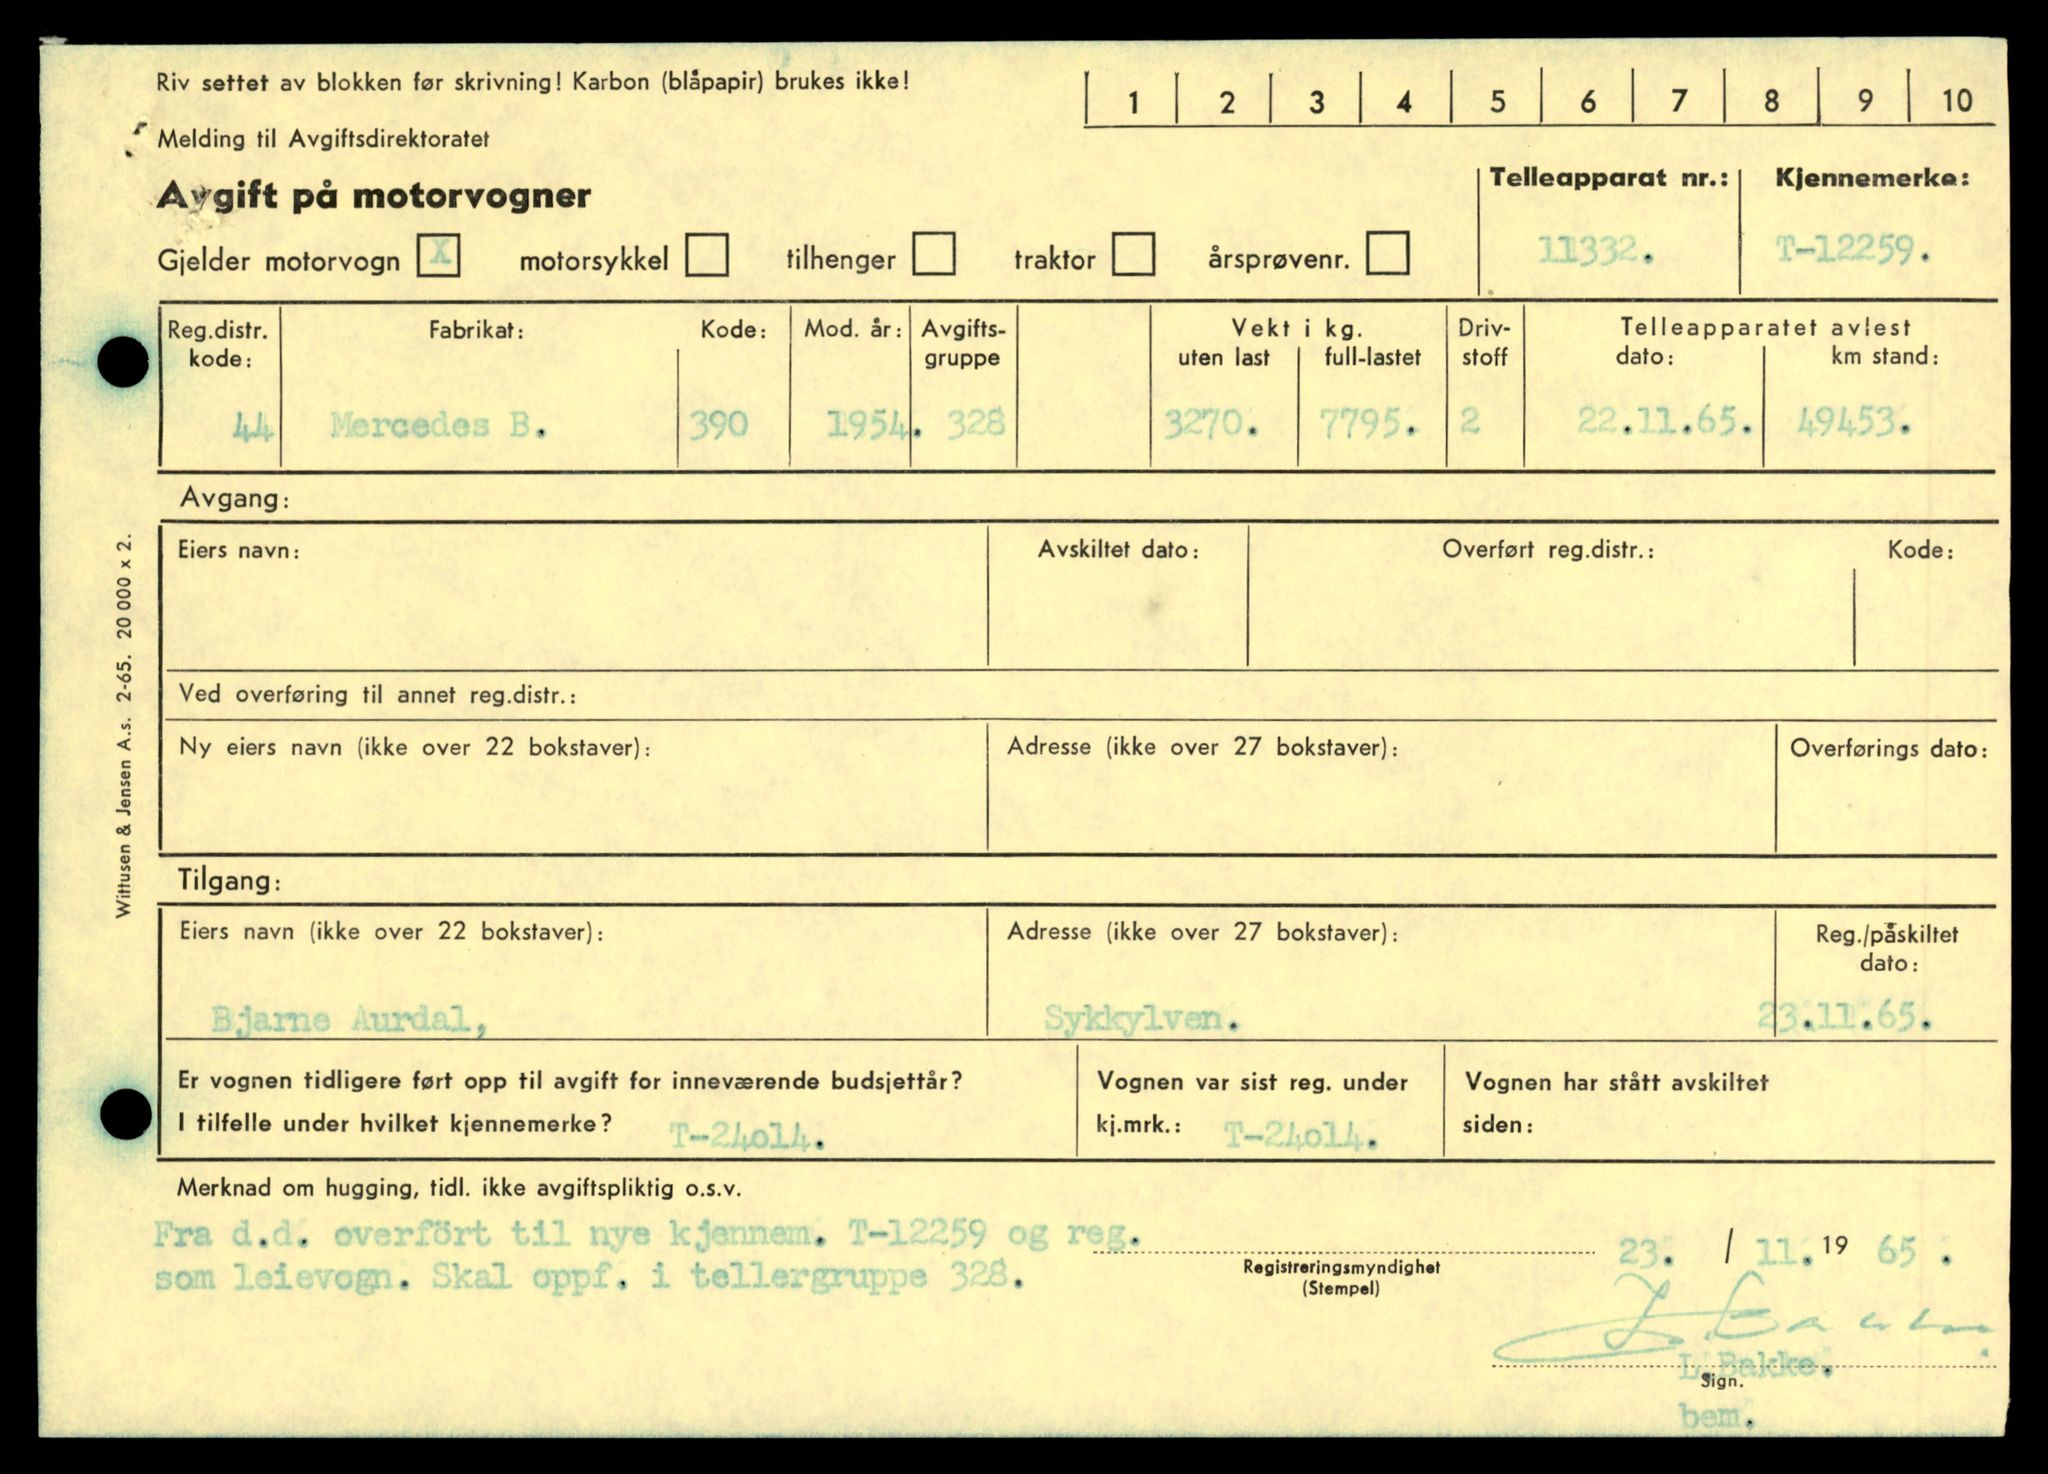 Riv settet av blokken før skrivning! Karbon (blåpapir) brukes ikke!
1 2 3 4 5 6 7 8 9 10
Melding til Avgiftsdirektoratet
Avgift på motorvogner
Telleapparat nr.: Kjennemerke:
Gjelder motorvogn X motorsykkel tilhenger traktor årsprøvenr. 11332. T-12259.
Reg.distr. kode: Fabrikat: Kode: Mod. år: Avgifts-gruppe Vekt i kg. uten last full-lastet Driv-stoff Telleapparatet avlest dato: km stand:
44 Mercedes B. 390 1954. 328 3270. 7795. 2 22.11.65. 49453.
Avgang:
Eiers navn: Avskiltet dato: Overført reg.distr.: Kode:
Ved overføring til annet reg.distr.:
Ny eiers navn (ikke over 22 bokstaver): Adresse (ikke over 27 bokstaver): Overførings dato:
Tilgang:
Eiers navn (ikke over 22 bokstaver): Adresse (ikke over 27 bokstaver): Reg./påskiltet dato:
Bjarne Aurdal, Sykkylven. 23.11.65.
Er vognen tidligere ført opp til avgift for inneværende budsjettår? Vognen var sist reg. under Vognen har stått avskiltet
I tilfelle under hvilket kjennemerke? T-24o14. kj.mrk.: T-24o14. siden:
Merknad om hugging, tidl. ikke avgiftspliktig o.s.v.
Fra d.d. overfört til nye kjennem. T-12259 og reg.
som leievogn. Skal oppf. i tellergruppe 328.
Registreringsmyndighet
(Stempel)
23. / 11. 19 65.
L. Bakke.
L.Bakke.
Sign.
bem.
Wittusen & Jensen A.s. 2-65. 20 000 x 2.